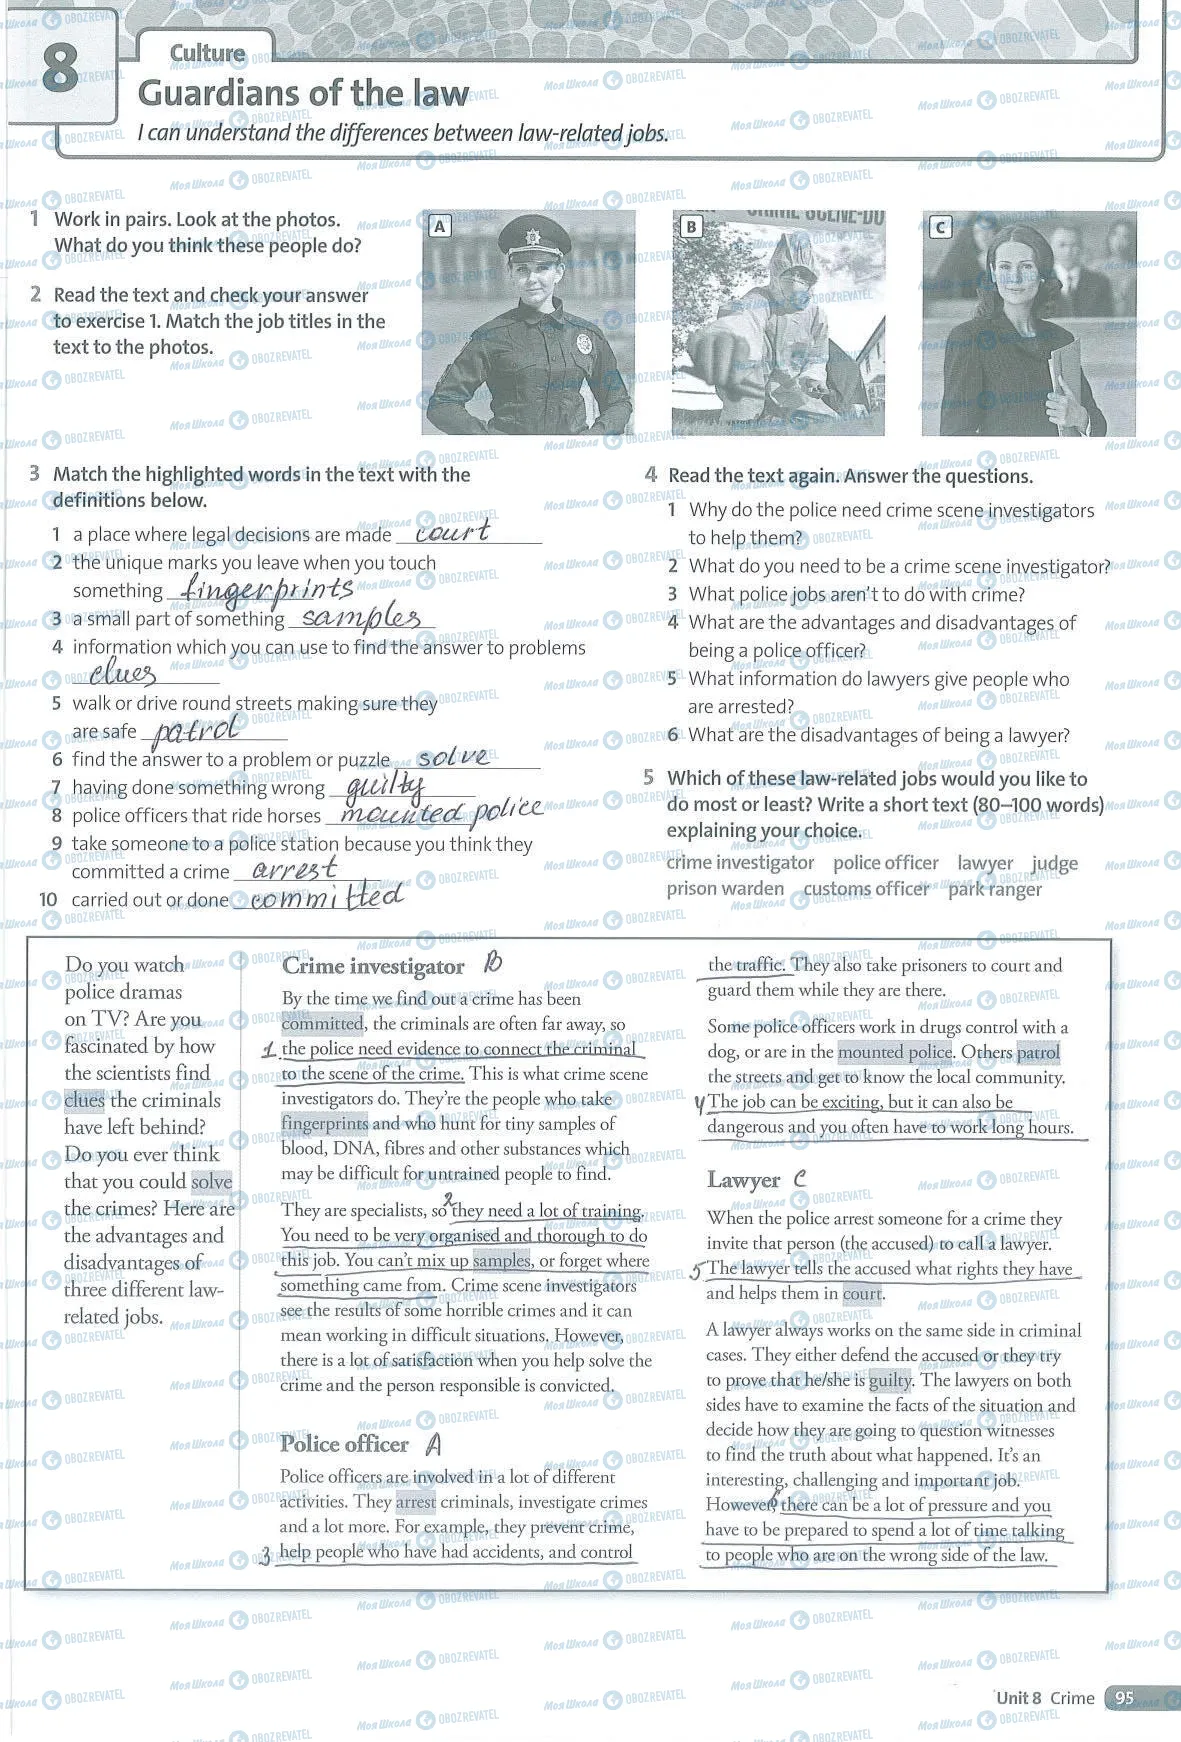 8
Culture
Guardians of the law
I can understand the differences between law-related jobs.
1 Work in pairs. Look at the photos.
What do you think these people do?
2 Read the text and check your answer
to exercise 1. Match the job titles in the
text to the photos.
A
B
CRIME SCENE-DO
C
3 Match the highlighted words in the text with the
definitions below.
1 a place where legal decisions are made court
2 the unique marks you leave when you touch
something fingerprints
3 a small part of something samples
4 information which you can use to find the answer to problems
clues
5 walk or drive round streets making sure they
are safe patrol
6 find the answer to a problem or puzzle solve
7 having done something wrong guilty
8 police officers that ride horses mounted police
9 take someone to a police station because you think they
committed a crime arrest
10 carried out or done committed
4 Read the text again. Answer the questions.
1 Why do the police need crime scene investigators
to help them?
2 What do you need to be a crime scene investigator?
3 What police jobs aren't to do with crime?
4 What are the advantages and disadvantages of
being a police officer?
5 What information do lawyers give people who
are arrested?
6 What are the disadvantages of being a lawyer?
5 Which of these law-related jobs would you like to
do most or least? Write a short text (80–100 words)
explaining your choice.
crime investigator police officer lawyer judge
prison warden customs officer park ranger
Do you watch
police dramas
on TV? Are you
fascinated by how
the scientists find
clues the criminals
have left behind?
Do you ever think
that you could solve
the crimes? Here are
the advantages and
disadvantages of
three different law-
related jobs.
Crime investigator B
By the time we find out a crime has been
committed, the criminals are often far away, so
1 the police need evidence to connect the criminal
to the scene of the crime. This is what crime scene
investigators do. They're the people who take
fingerprints and who hunt for tiny samples of
blood, DNA, fibres and other substances which
may be difficult for untrained people to find.
They are specialists, so 2 they need a lot of training.
You need to be very organised and thorough to do
this job. You can't mix up samples, or forget where
something came from. Crime scene investigators
see the results of some horrible crimes and it can
mean working in difficult situations. However,
there is a lot of satisfaction when you help solve the
crime and the person responsible is convicted.
Police officer A
Police officers are involved in a lot of different
activities. They arrest criminals, investigate crimes
and a lot more. For example, they prevent crime,
3 help people who have had accidents, and control
the traffic. They also take prisoners to court and
guard them while they are there.
Some police officers work in drugs control with a
dog, or are in the mounted police. Others patrol
the streets and get to know the local community.
4 The job can be exciting, but it can also be
dangerous and you often have to work long hours.
Lawyer C
When the police arrest someone for a crime they
invite that person (the accused) to call a lawyer.
5 The lawyer tells the accused what rights they have
and helps them in court.
A lawyer always works on the same side in criminal
cases. They either defend the accused or they try
to prove that he/she is guilty. The lawyers on both
sides have to examine the facts of the situation and
decide how they are going to question witnesses
to find the truth about what happened. It's an
interesting, challenging and important job.
However, 6 there can be a lot of pressure and you
have to be prepared to spend a lot of time talking
to people who are on the wrong side of the law.
Unit 8 Crime 95
Моя Школа OBOZREVATEL